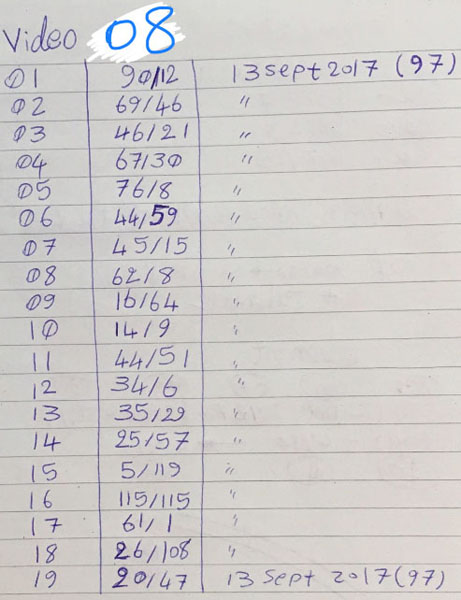 Video 08
01 90/12 13 sept 2017 (97)
02 69/46 "
03 46/21 "
04 67/30 "
05 76/8 "
06 44/59 "
07 45/15 "
08 62/8 "
09 16/64 "
10 14/9 "
11 44/51 "
12 34/6 "
13 35/29 "
14 25/57 "
15 5/119 "
16 115/115 "
17 61/1 "
18 26/108 "
19 20/47 13 Sept 2017 (97)